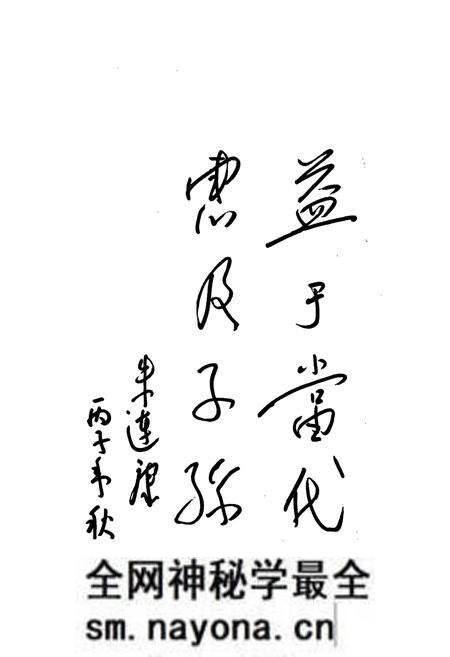 益于當代
惠及子孫
朱連
丙子年秋
全网神秘学最全
sm.nayona.cn